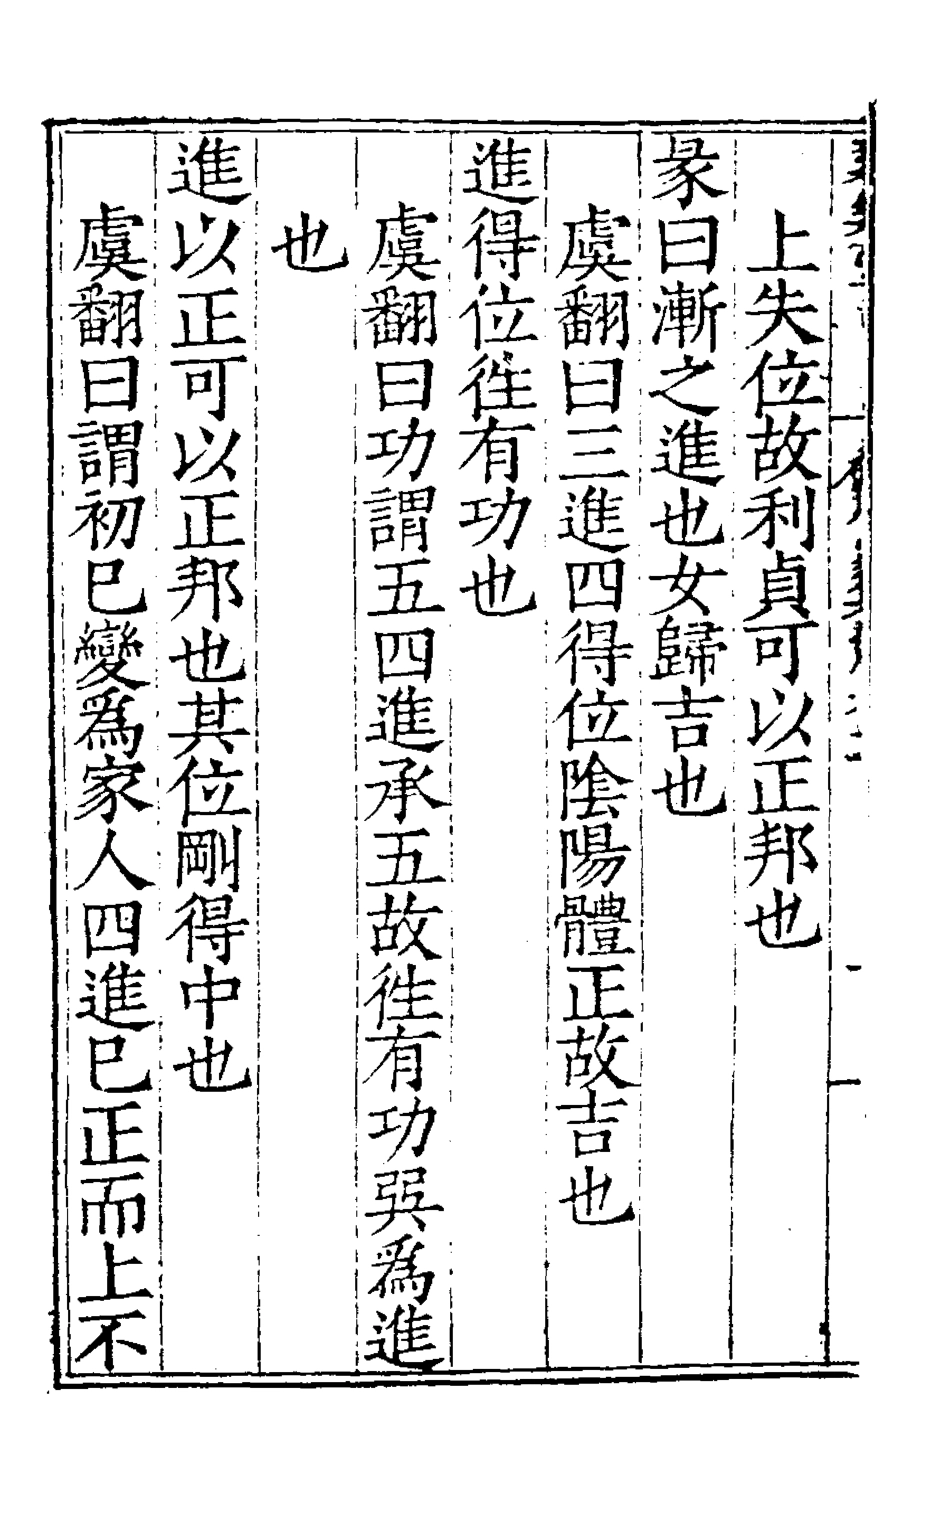 上失位故利貞可以正邦也
彖曰漸之進也女歸吉也
虞翻曰三進四得位陰陽體正故吉也
進得位徃有功也
虞翻曰功謂五四進承五故徃有功巽爲進
也
進以正可以正邦也其位剛得中也
虞翻曰謂初巳變爲家人四進巳正而上不